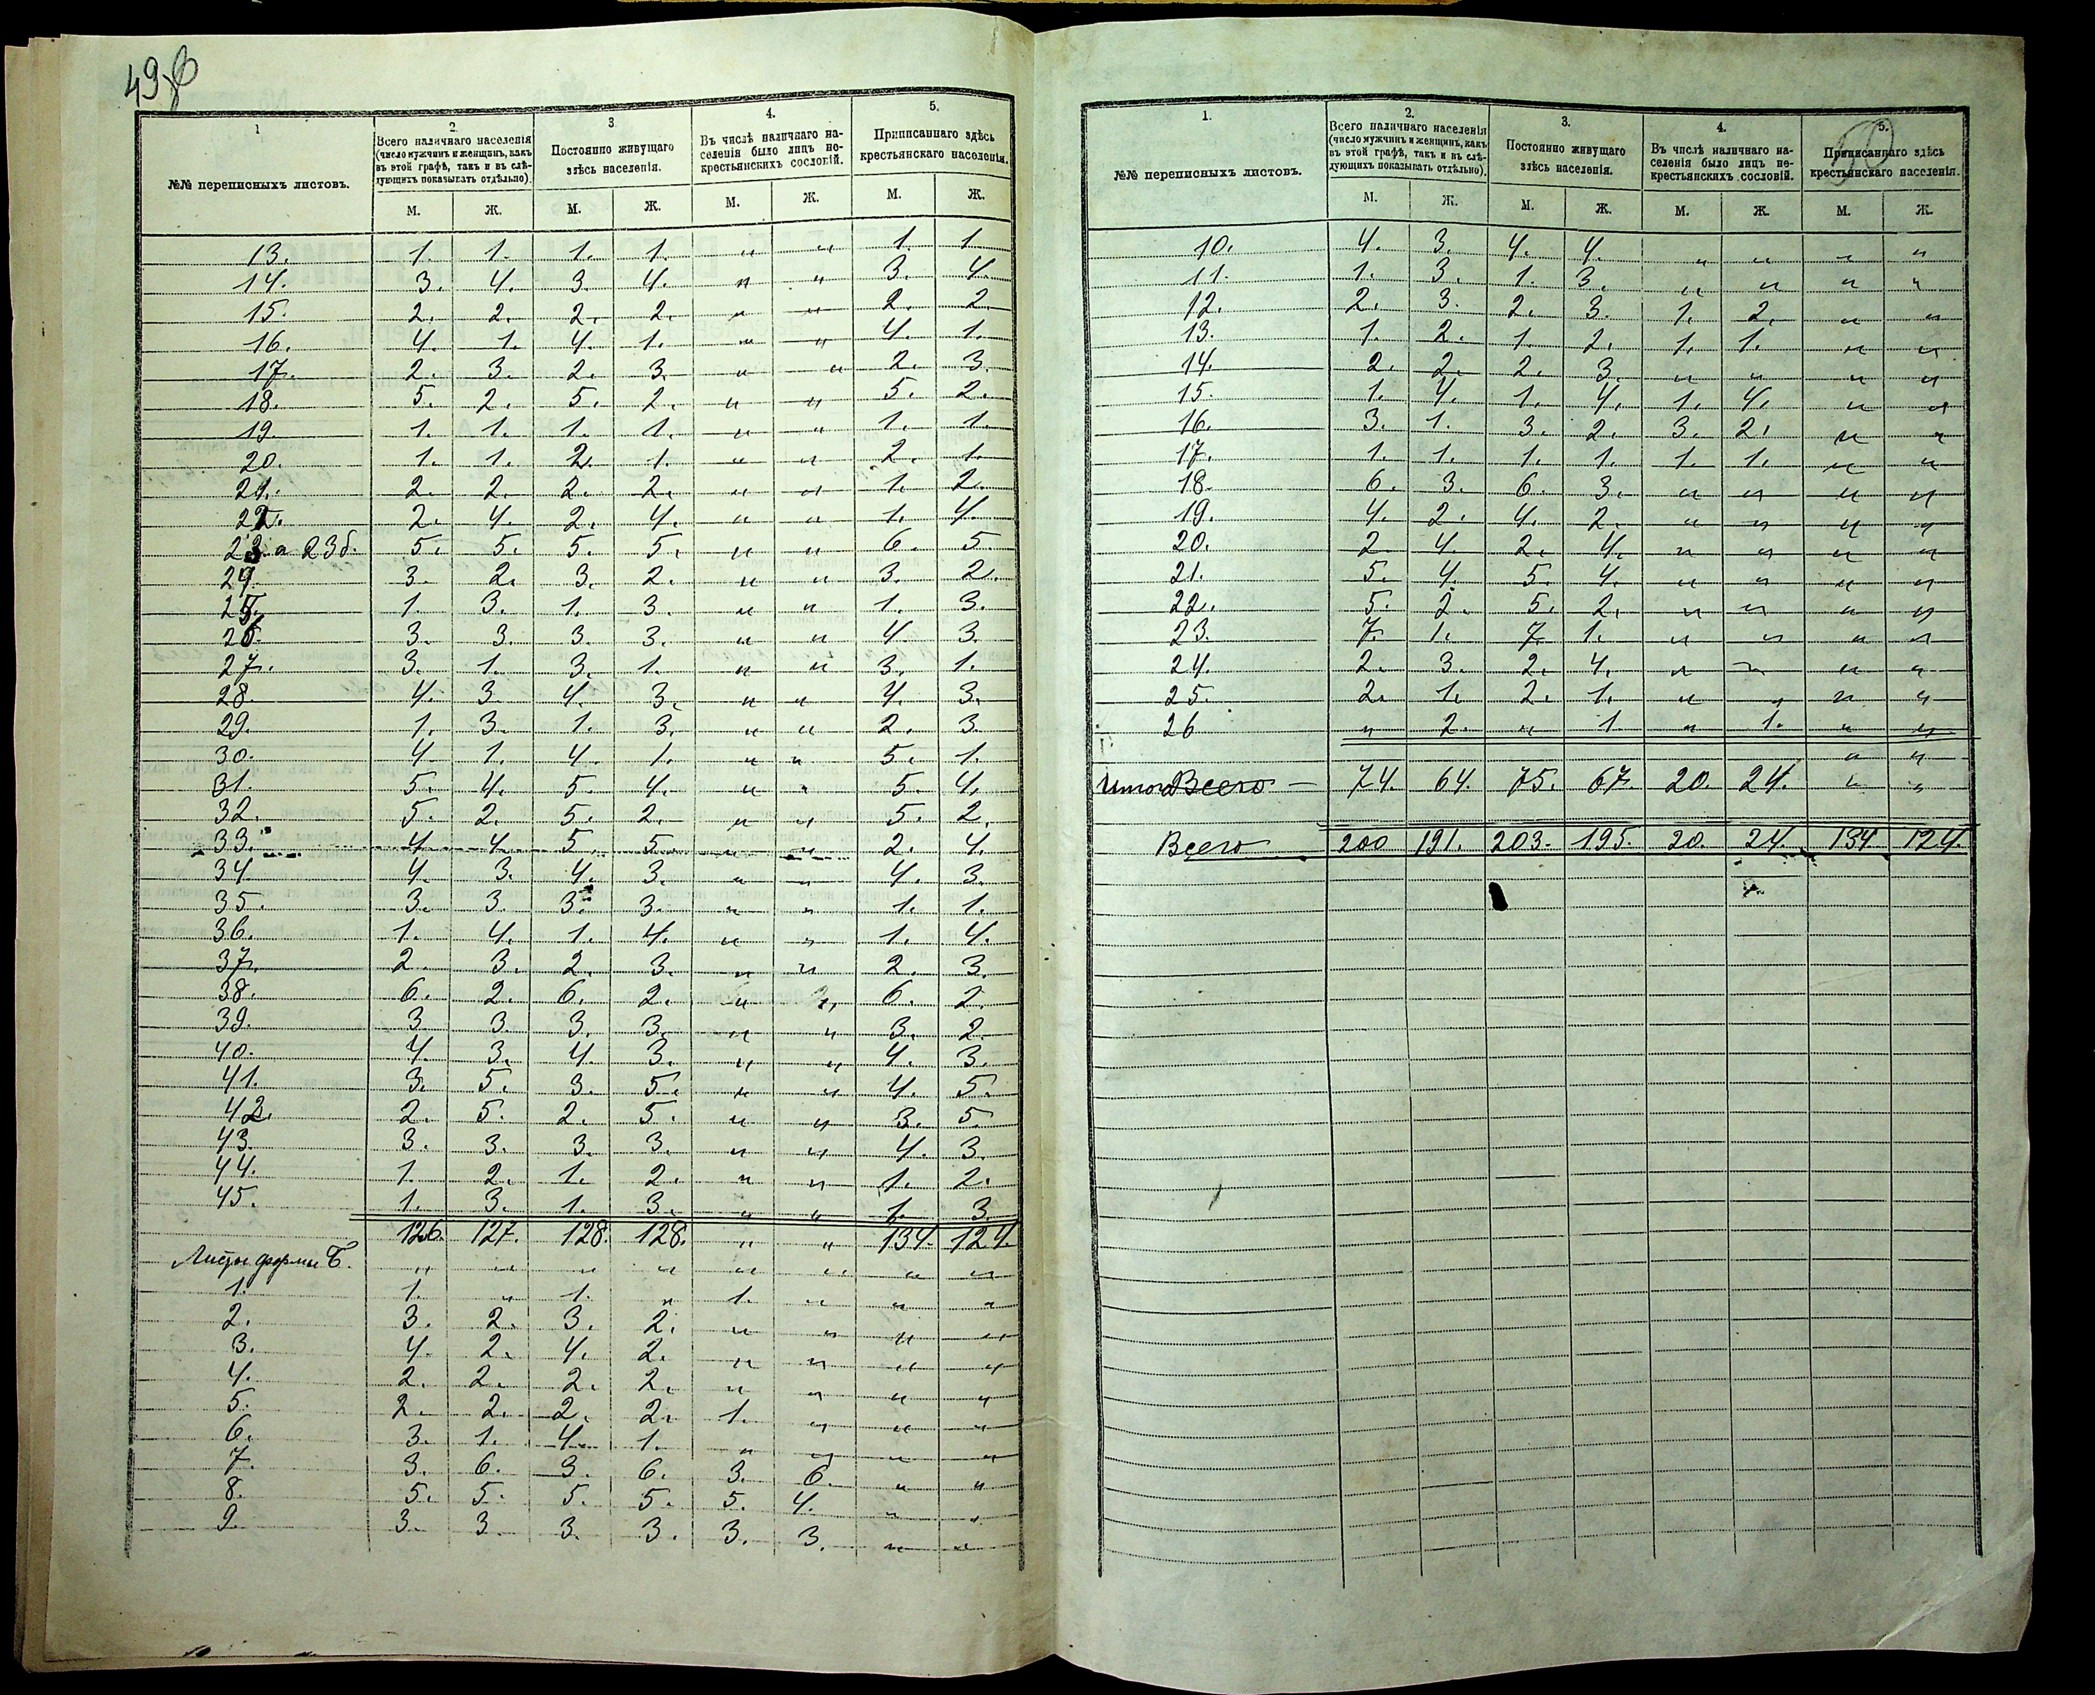 49об
1
2.
3.
4.
5.
№№ переписныхъ листовъ.
Всего наличнаго населенія (число мужчинъ и женщинъ, какъ въ этой графѣ, такъ и въ слѣдующихъ показывать отдѣльно).
Постоянно живущаго здѣсь населенія.
Въ числѣ наличнаго населенія было лицъ некрестьянскихъ сословій.
Приписаннаго здѣсь крестьянскаго населенія.
М. Ж. М. Ж. М. Ж. М. Ж.
13. 1. 1. 1. 1. " " 1. 1
14. 3. 4. 3. 4. " " 3. 4.
15. 2. 2. 2. 2. " " 2. 2.
16. 4. 1. 4. 1. " " 4. 1.
17. 2. 3. 2. 3. " " 2. 3.
18. 5. 2. 5. 2. " " 5. 2.
19. 1. 1. 1. 1. " " 1. 1.
20. 1. 1. 2. 1. " " 2. 1.
21. 2. 2. 2. 2. " " 1. 2.
22. 2. 4. 2. 4. " " 1. 4.
23 а 23б. 5. 5. 5. 5. " " 6. 5.
24. 3. 2. 3. 2. " " 3. 2.
25. 1. 3. 1. 3. " " 1. 3.
26. 3. 3. 3. 3. " " 4. 3.
27. 3. 1. 3. 1. " " 3. 1.
28. 4. 3. 4. 3. " " 4. 3.
29. 1. 3. 1. 3. " " 2. 3.
30. 4. 1. 4. 1. " " 5. 1.
31. 5. 4. 5. 4. " " 5. 4.
32. 5. 2. 5. 2. " " 5. 2.
33. 4. 4. 5. 5. " " 2. 4.
34. 4. 3. 4. 3. " " 4. 3.
35. 3. 3. 3. 3. " " 1. 1.
36. 1. 4. 1. 4. " " 1. 4.
37. 2. 3. 2. 3. " " 2. 3.
38. 6. 2. 6. 2. " " 6. 2.
39. 3. 3. 3. 3. " " 3. 2.
40. 4. 3. 4. 3. " " 4. 3.
41. 3. 5. 3. 5. " " 4. 5.
42. 2. 5. 2. 5. " " 3. 5.
43. 3. 3. 3. 3. " " 4. 3.
44. 1. 2. 1. 2. " " 1. 2.
45. 1. 3. 1. 3. " " 1. 3.
126. 127. 128. 128. " " 134. 124.
Листы формы Б. " " " " " " " "
1. 1. " 1. " 1. " " "
2. 3. 2. 3. 2. " " " "
3. 4. 2. 4. 2. " " " "
4. 2. 2. 2. 2. " " " "
5. 2. 2. 2. 2. 1. " " "
6. 3. 1. 4. 1. " " " "
7. 3. 6. 3. 6. 3. 6. " "
8. 5. 5. 5. 5. 5. 4. " "
9. 3. 3. 3. 3. 3. 3. " "
50
1.
2.
3.
4.
5.
№№ переписныхъ листовъ.
Всего наличнаго населенія (число мужчинъ и женщинъ, какъ въ этой графѣ, такъ и въ слѣдующихъ показывать отдѣльно).
Постоянно живущаго здѣсь населенія.
Въ числѣ наличнаго населенія было лицъ некрестьянскихъ сословій.
Приписаннаго здѣсь крестьянскаго населенія.
М. Ж. М. Ж. М. Ж. М. Ж.
10. 4. 3. 4. 4. " " " "
11. 1. 3. 1. 3. " " " "
12. 2. 3. 2. 3. 1. 2. " "
13. 1. 2. 1. 2. 1. 1. " "
14. 2. 2. 2. 3. " " " "
15. 1. 4. 1. 4. 1. 4. " "
16. 3. 1. 3. 2. 3. 2. " "
17. 1. 1. 1. 1. 1. 1. " "
18. 6. 3. 6. 3. " " " "
19. 4. 2. 4. 2. " " " "
20. 2. 4. 2. 4. " " " "
21. 5. 4. 5. 4. " " " "
22. 5. 2. 5. 2. " " " "
23. 7. 1. 7. 1. " " " "
24. 2. 3. 2. 4. " " " "
25. 2. 1. 2. 1. " " " "
26 " 2. " 1. " 1. " "
" "
Итого Всего — 74. 64. 75. 67. 20. 24. " "
Всего 200 191. 203. 195. 20. 24. 134. 124.